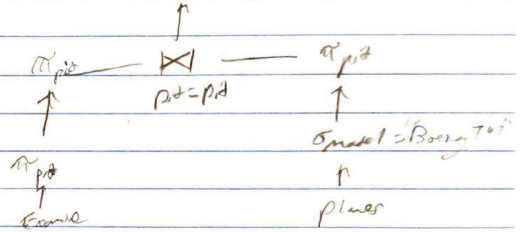 π pid ⋈ π pid
pid = pid
σ model = "Boeing 707"
π pid
planes